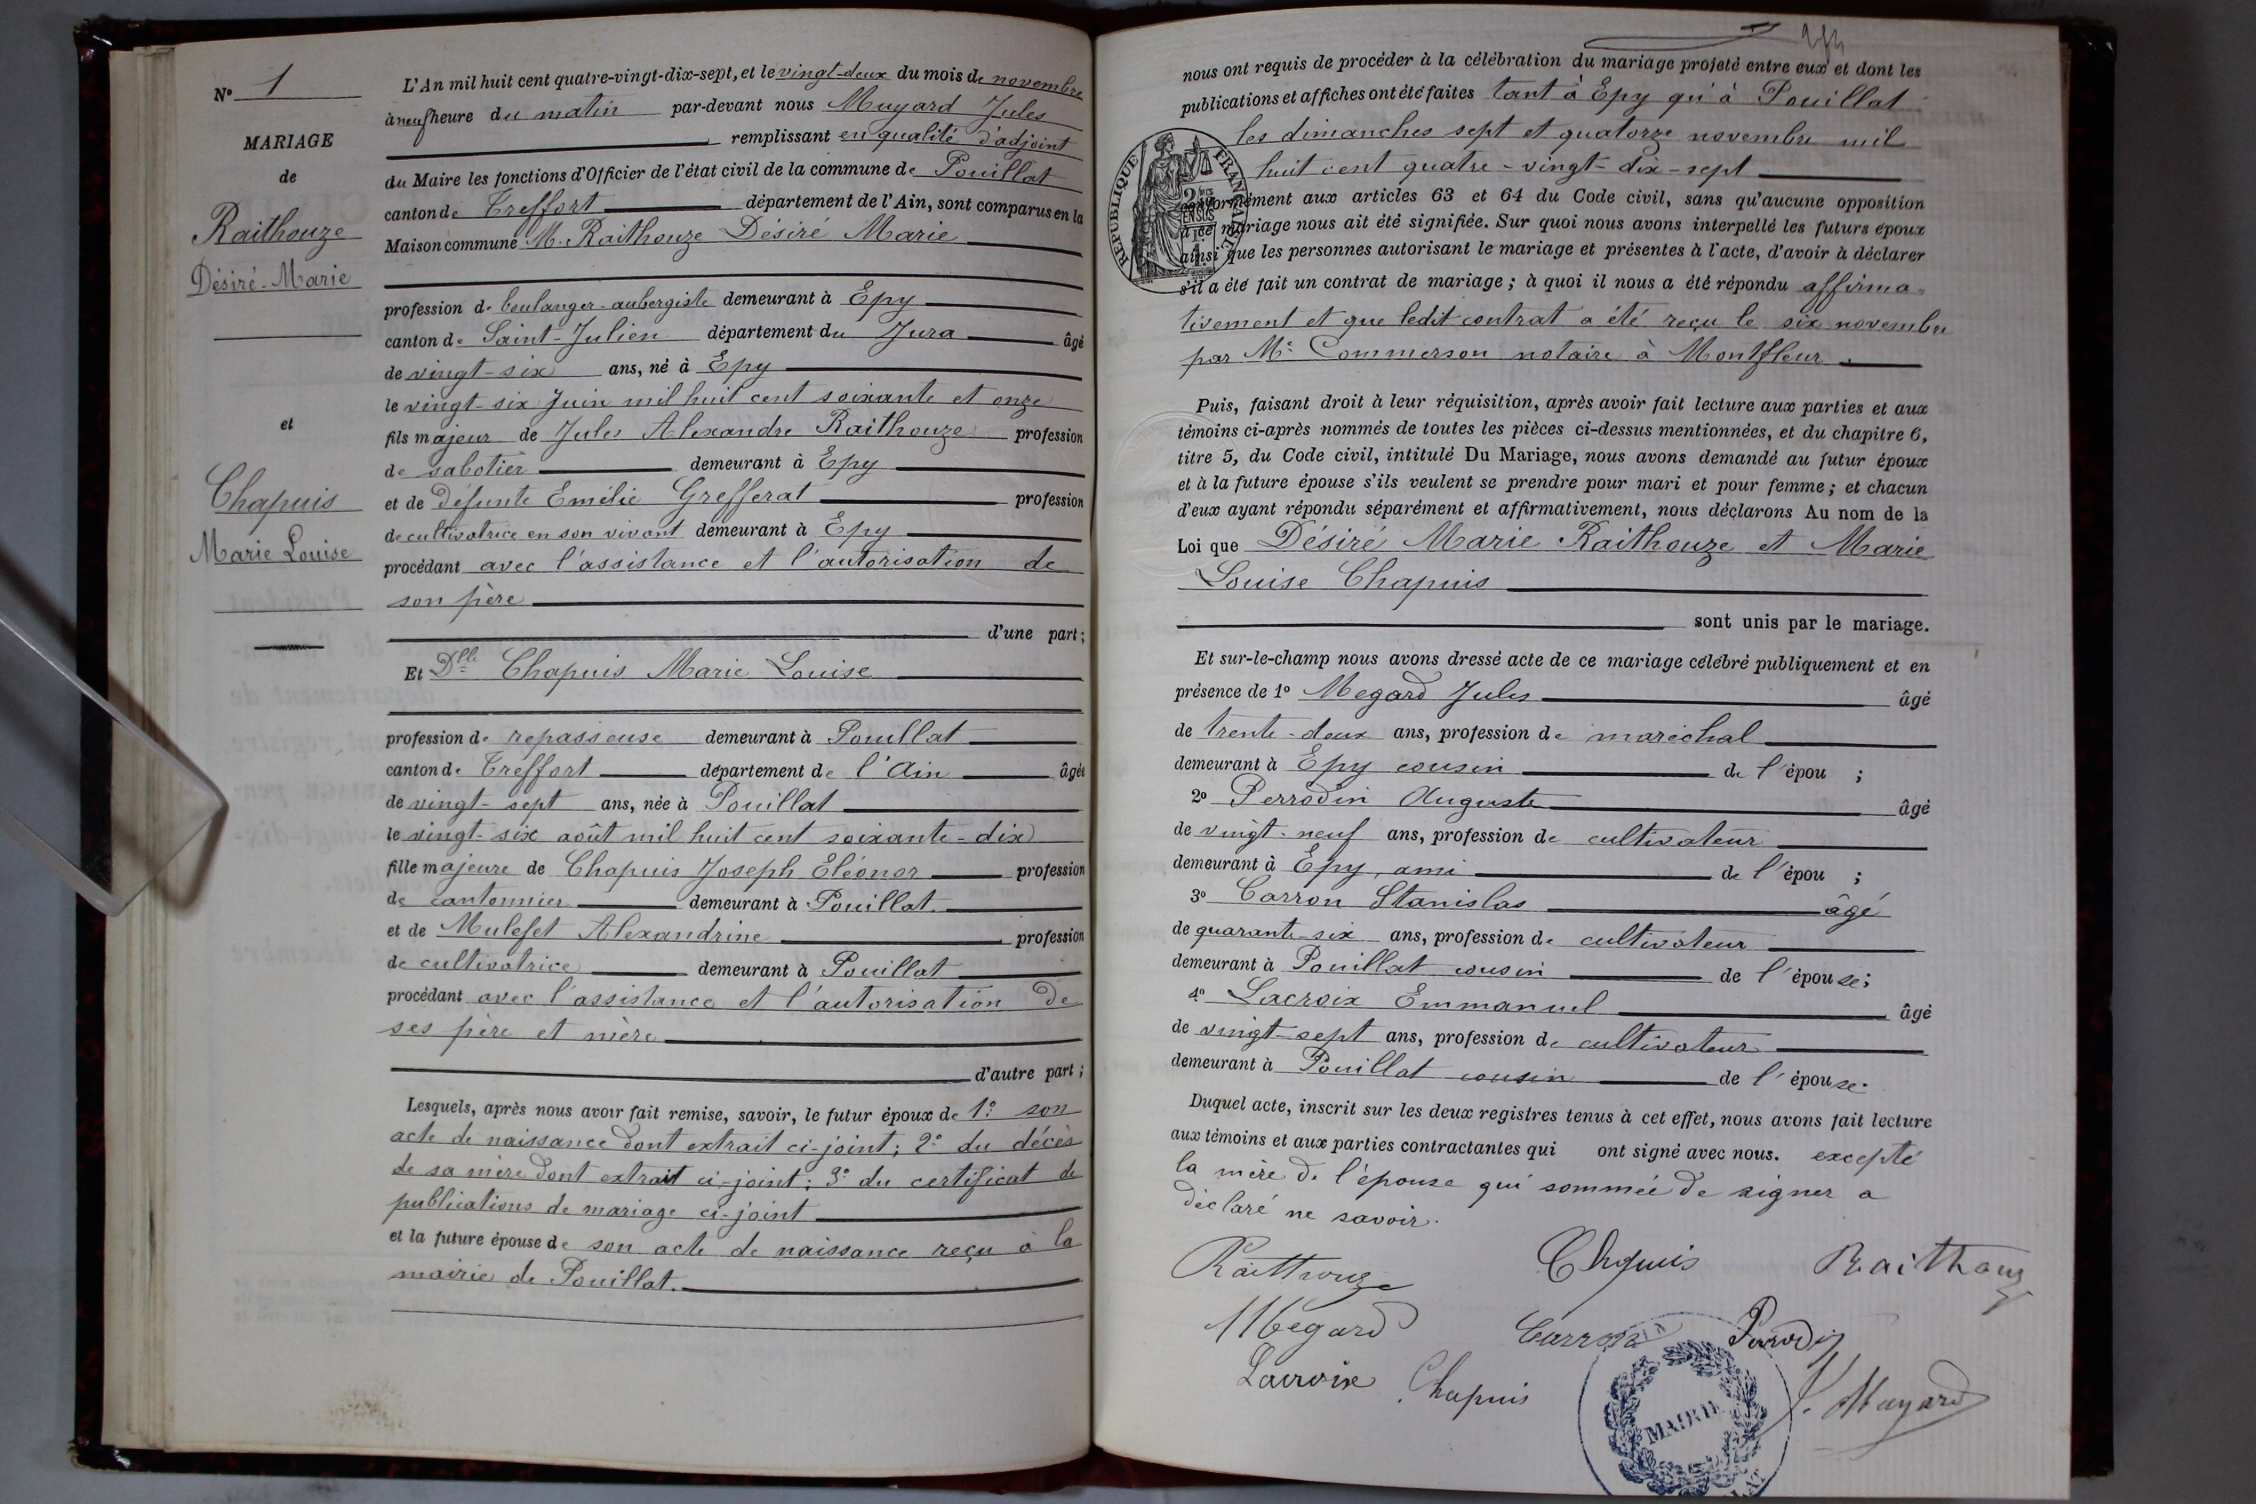 N° 1
MARIAGE
de
Raithouze
Désiré-Marie
et
Chapuis
Marie Louise
L'An mil huit cent quatre-vingt-dix-sept, et le vingt-deux du mois de novembre
à neuf heure du matin par-devant nous Muyard Jules
remplissant en qualité d'adjoint
du Maire les fonctions d'Officier de l'état civil de la commune de Pouillat
canton de Treffort département de l'Ain, sont comparus en la
Maison commune M. Raithouze Désiré Marie
profession de boulanger-aubergiste demeurant à Epy
canton de Saint-Julien département du Jura âgé
de vingt-six ans, né à Epy
le vingt-six Juin mil huit cent soixante et onze
fils majeur de Jules Alexandre Raithouze profession
de sabotier demeurant à Epy
et de Défunte Emélie Grefferat profession
de cultivatrice en son vivant demeurant à Epy
procédant avec l'assistance et l'autorisation de
son père
d'une part;
Et Dlle Chapuis Marie Louise
profession de repasseuse demeurant à Pouillat
canton de Treffort département de l'Ain âgée
de vingt-sept ans, née à Pouillat
le vingt-six août mil huit cent soixante-dix
fille majeure de Chapuis Joseph Eléonor profession
de cantonnier demeurant à Pouillat.
et de Mulefet Alexandrine profession
de cultivatrice demeurant à Pouillat
procédant avec l'assistance et l'autorisation de
ses père et mère
d'autre part;
Lesquels, après nous avoir fait remise, savoir, le futur époux de 1° son
acte de naissance dont extrait ci-joint; 2° du décès
de sa mère dont extrait ci-joint; 3° du certificat de
publications de mariage ci-joint
et la future épouse de son acte de naissance reçu à la
mairie de Pouillat.
nous ont requis de procéder à la célébration du mariage projeté entre eux et dont les
publications et affiches ont été faites tant à Epy qu'à Pouillat
les dimanches sept et quatorze novembre mil
huit cent quatre-vingt-dix-sept
conformément aux articles 63 et 64 du Code civil, sans qu'aucune opposition
à ce mariage nous ait été signifiée. Sur quoi nous avons interpellé les futurs époux
ainsi que les personnes autorisant le mariage et présentes à l'acte, d'avoir à déclarer
s'il a été fait un contrat de mariage; à quoi il nous a été répondu affirma-
tivement et que ledit contrat a été reçu le six novembre
par Me Commerson notaire à Montfleur.
RÉPUBLIQUE FRANÇAISE
Puis, faisant droit à leur réquisition, après avoir fait lecture aux parties et aux
témoins ci-après nommés de toutes les pièces ci-dessus mentionnées, et du chapitre 6,
titre 5, du Code civil, intitulé Du Mariage, nous avons demandé au futur époux
et à la future épouse s'ils veulent se prendre pour mari et pour femme; et chacun
d'eux ayant répondu séparément et affirmativement, nous déclarons Au nom de la
Loi que Désiré Marie Raithouze et Marie
Louise Chapuis
sont unis par le mariage.
Et sur-le-champ nous avons dressé acte de ce mariage célébré publiquement et en
présence de 1° Megard Jules âgé
de trente-deux ans, profession de maréchal
demeurant à Epy cousin de l'épou ;
2° Perrodin Auguste âgé
de vingt-neuf ans, profession de cultivateur
demeurant à Epy, ami de l'épou ;
3° Carron Stanislas âgé
de quarante-six ans, profession de cultivateur
demeurant à Pouillat cousin de l'épouse;
4° Lacroix Emmanuel âgé
de vingt-sept ans, profession de cultivateur
demeurant à Pouillat cousin de l'épouse.
Duquel acte, inscrit sur les deux registres tenus à cet effet, nous avons fait lecture
aux témoins et aux parties contractantes qui ont signé avec nous. excepté
la mère de l'épouse qui sommée de signer a
déclaré ne savoir.
Raithouze Chapuis Raithouz
Megard Carron Perrodin
Lacroix Chapuis J. Muyard
MAIRIE